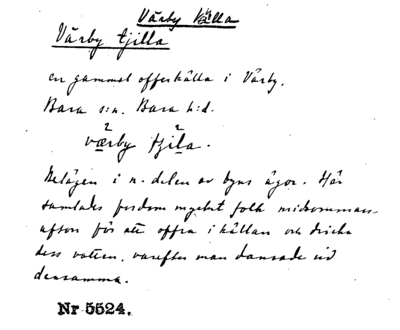 Vårby källa
Vårby tjilla
en gammal offerkälla i Vårby.
Bara s:n. Bara h:d.
værby tjila.
Belägen i n. delen av byns ägor. Här
samlades fordom mycket folk midsommars-
afton för att offra i källan och dricka
dess vatten, varefter man dansade vid
densamma.
Nr 5524.